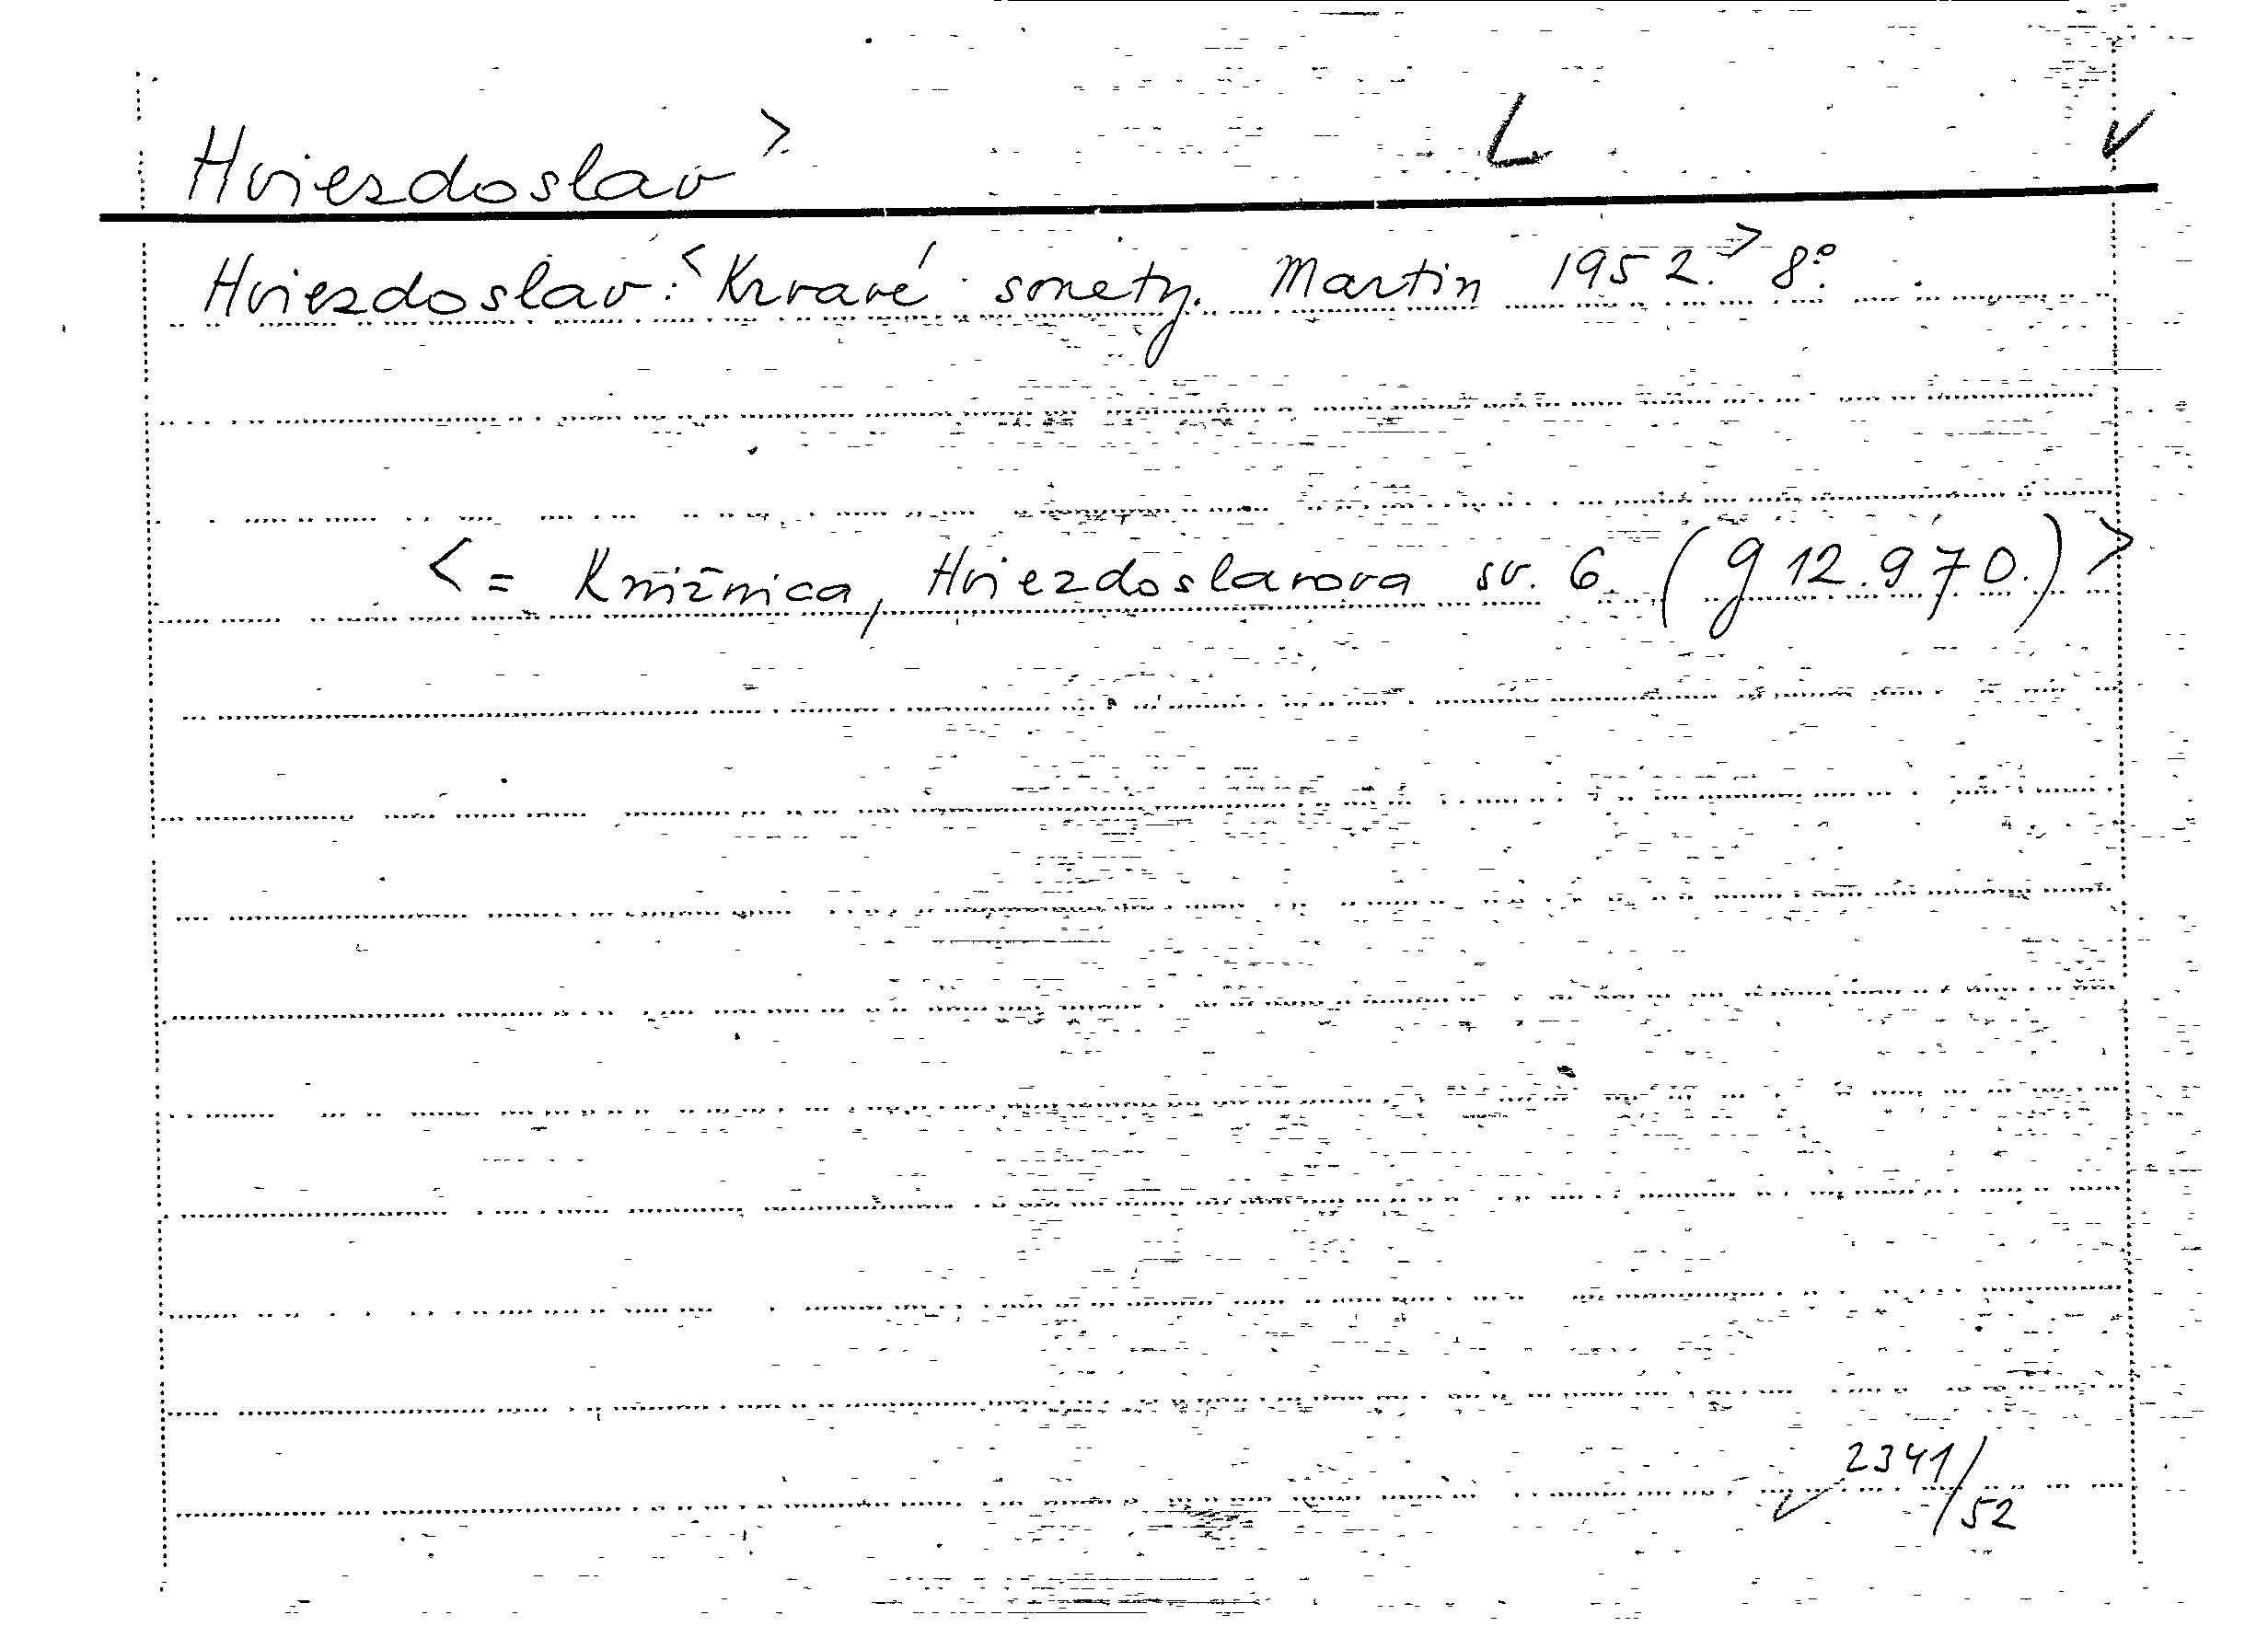 Hviezdoslav > L ✓
Hviezdoslav: <Krvavé sonety. Martin 1952.> 8°.
<= Knižnica, Hviezdoslavova sv. 6 (g 12.970.)>
✓ 2341/52